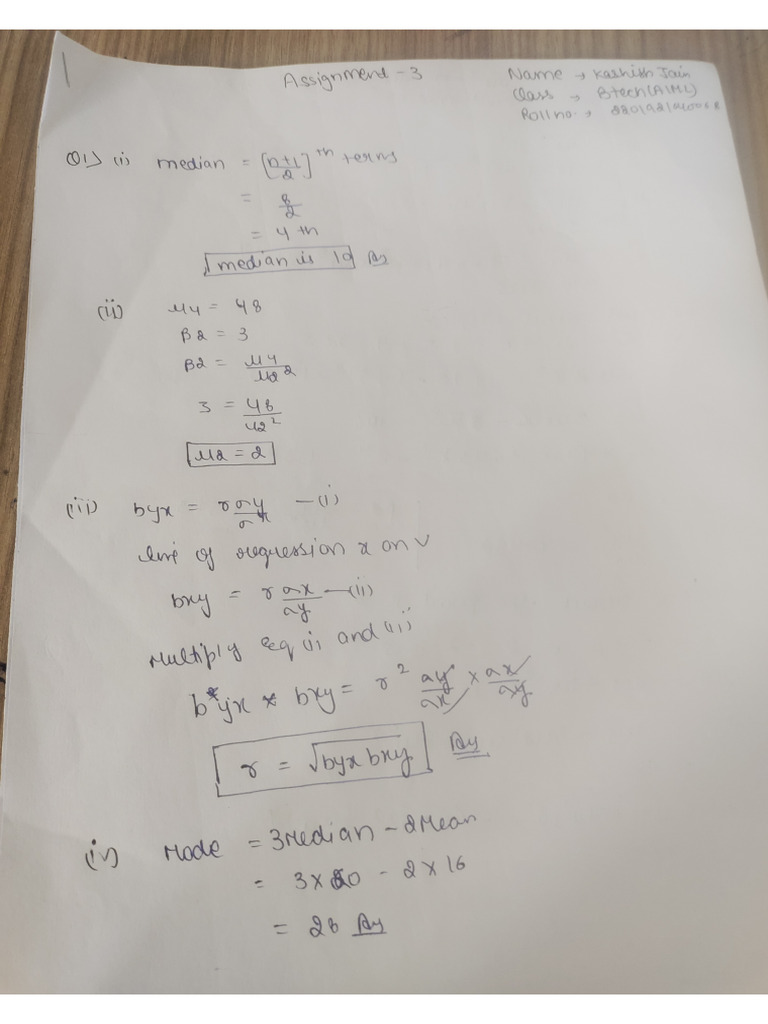 1
Assignmend - 3
Name → Kashish Jain
Class → Btech(AIML)
Roll no. →
Q1) (i) median = [n+1/2]^th terms
= 8/2
= 4 th
median is 10 Ans
(ii) μ4 = 48
β2 = 3
β2 = μ4/μ2²
3 = 48/μ2²
μ2 = 2
(iii) byx = r σy/σx —(i)
line of regression x on y
bxy = r σx/σy —(ii)
Multiply eq (i) and (ii)
byx × bxy = r² σy/σx × σx/σy
r = √byx bxy Ans
(iv) Mode = 3Median - 2Mean
= 3×20 - 2×16
= 28 Ans